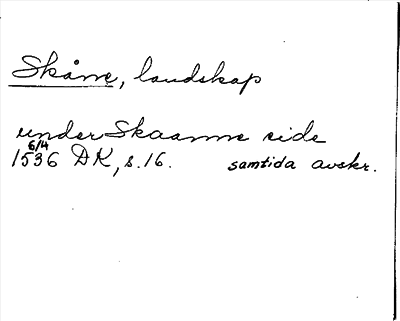 Skåne, landskap
under Skaanne side
6/4
1536 DK, s. 16. samtida avskr.